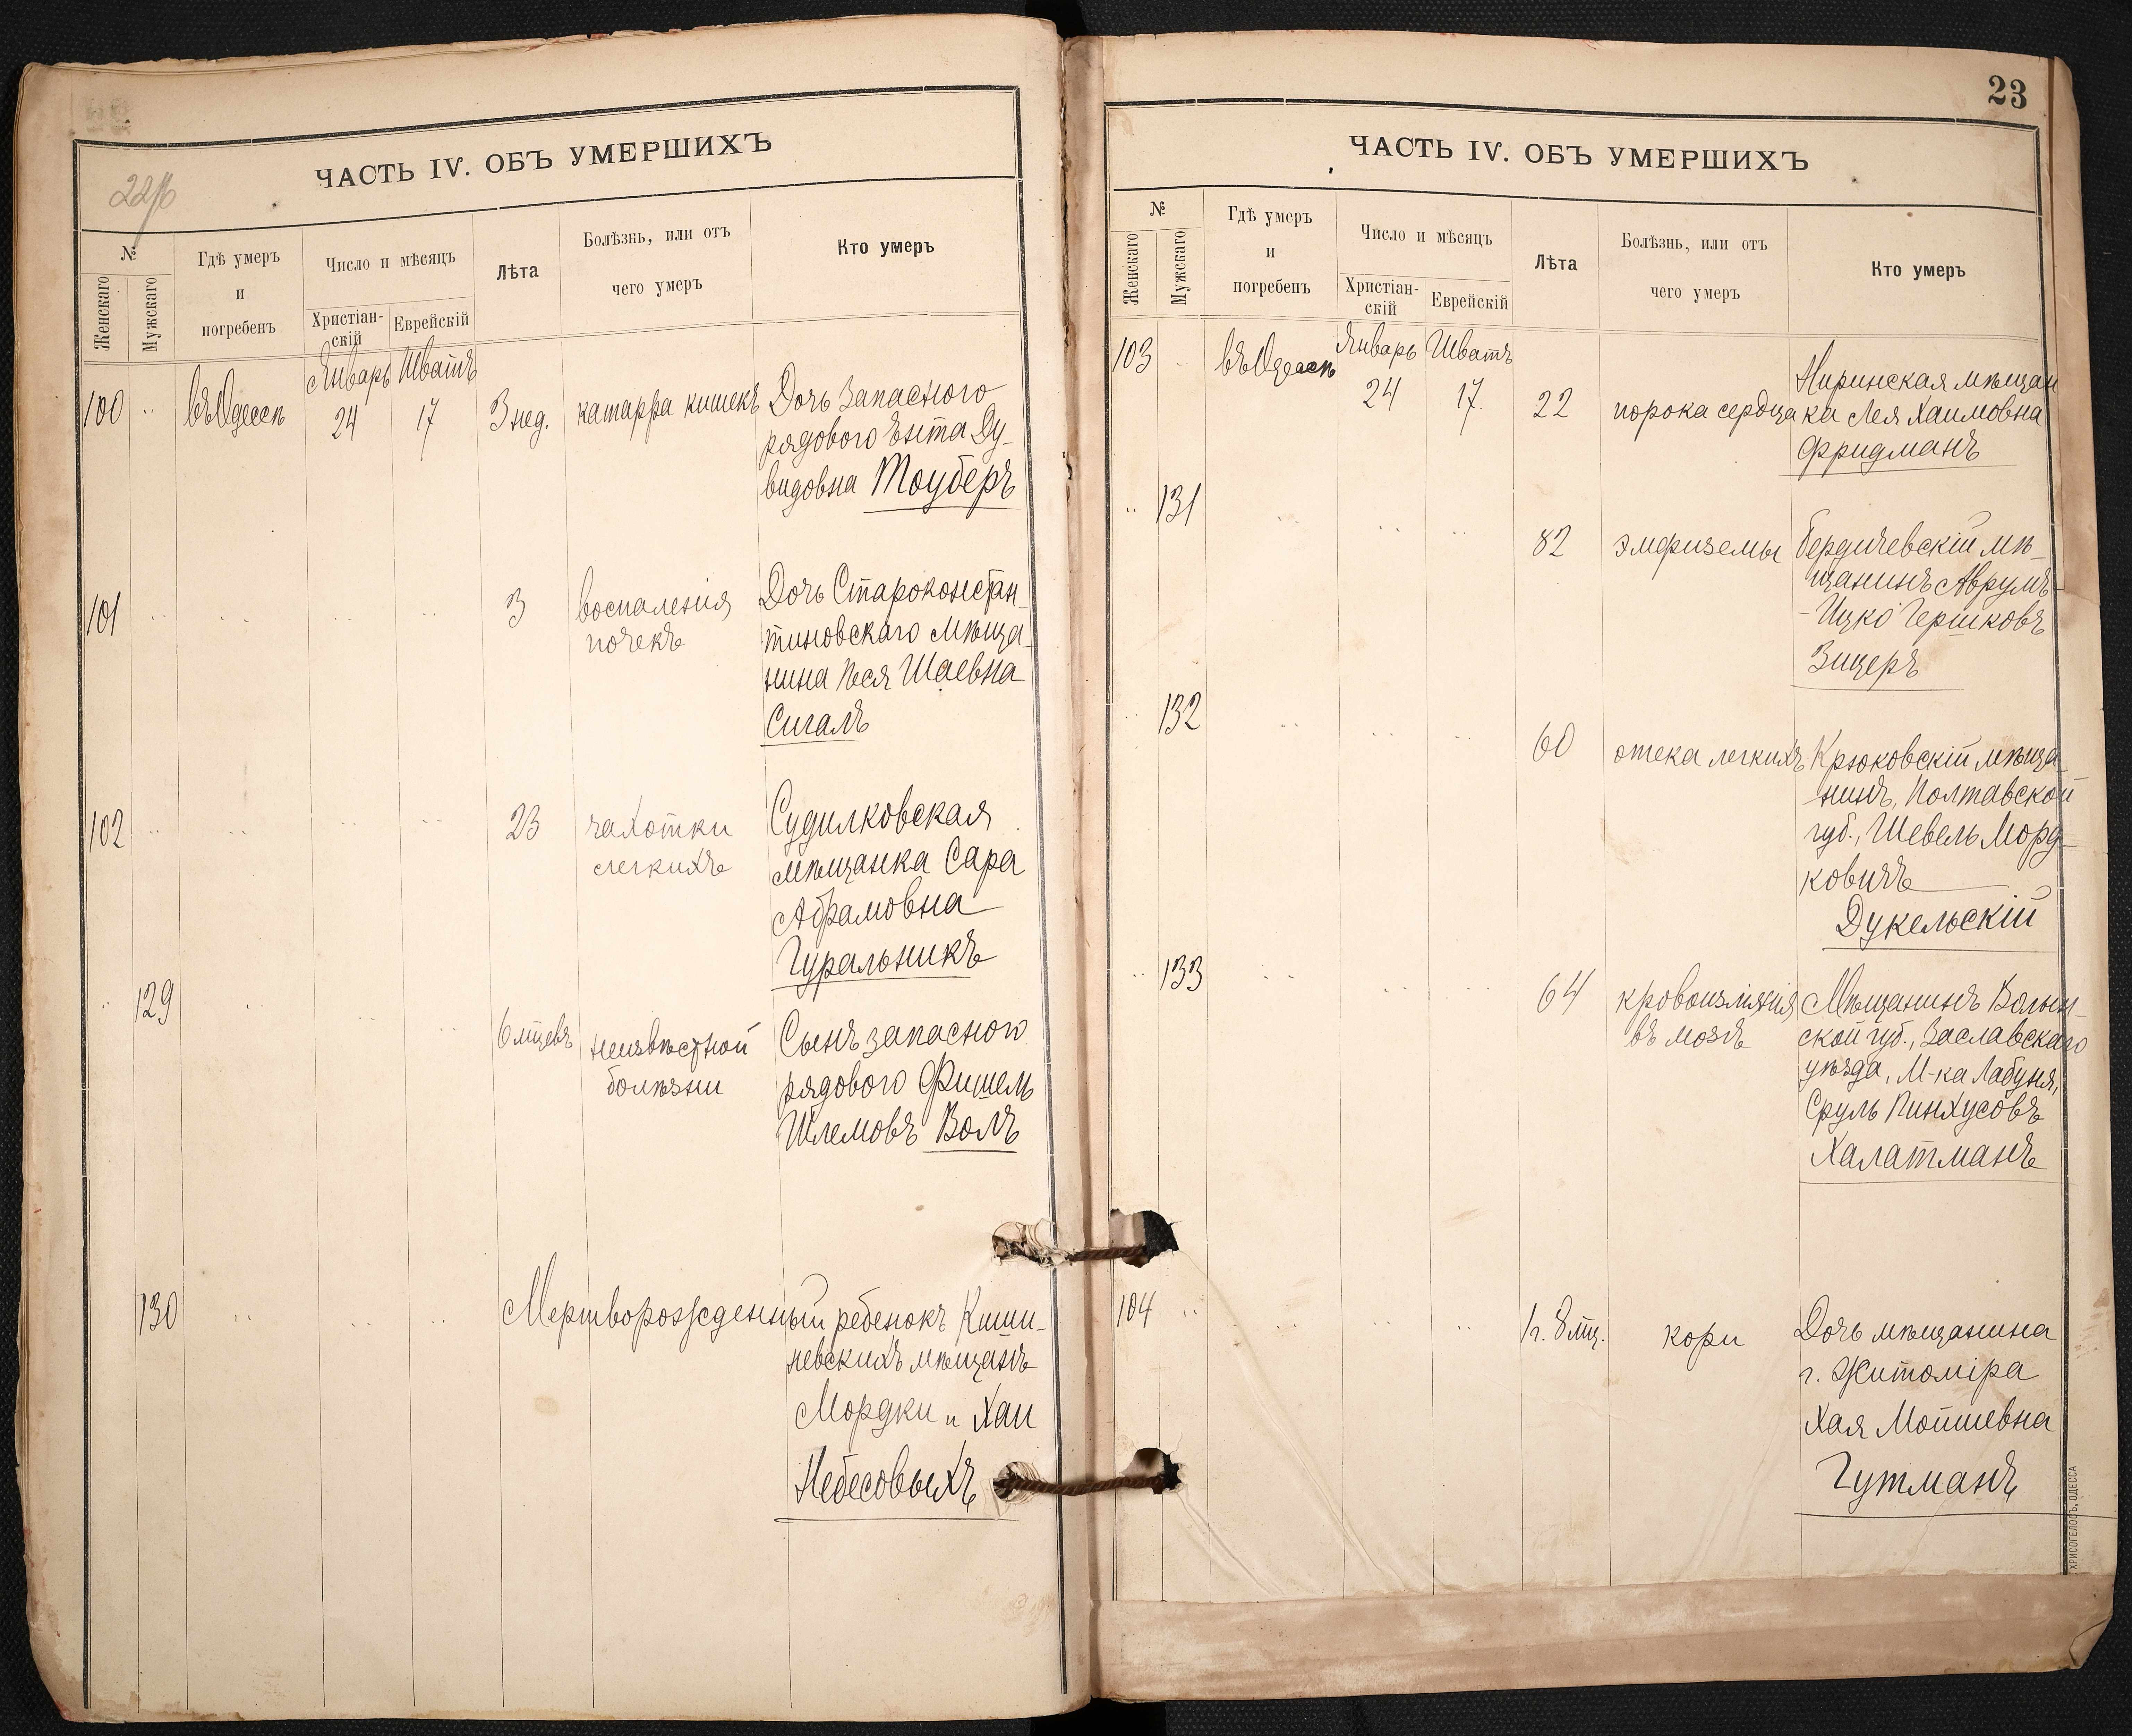 ЧАСТЬ IV. ОБЪ УМЕРШИХЪ
№
Женскаго
Мужскаго
Гдѣ умеръ
и
погребенъ
Число и мѣсяцъ
Христіан-
скій
Еврейскій
Лѣта
Болѣзнь, или отъ
чего умеръ
Кто умеръ
Январь Шватъ
100 въ Одессѣ 24 17 3 нед. катарра кишекъ Дочь Запаснаго
рядового Ента Ду-
видовна Тоуберъ
101 3 воспаленія Дочь Староконстан-
почекъ тиновскаго мѣща-
нина Песя Шаевна
Сигалъ
102 23 чахотки Судилковская
легкихъ мѣщанка Сара
Абрамовна
Гуральникъ
129 6 мцевъ неизвѣстной Сынъ запасного
болѣзни рядового Фишель
Шлемовъ Волъ
130 Мертворожденный ребенокъ Киши-
невскихъ мѣщанъ
Мордки и Хаи
Небесовыхъ
23
ЧАСТЬ IV. ОБЪ УМЕРШИХЪ
№
Женскаго
Мужскаго
Гдѣ умеръ
и
погребенъ
Число и мѣсяцъ
Христіан-
скій
Еврейскій
Лѣта
Болѣзнь, или отъ
чего умеръ
Кто умеръ
103 въ Одессѣ Январь Шватъ
24 17. 22 порока сердца мѣщан
ка Лея Хаимовна
Фридманъ
131
82 эмфиземы Бердичевскій мѣ-
щанинъ Аврумъ-
-Ицко Гершковъ
Зицеръ
132
60 отека легкихъ Крюковскій мѣща-
нинъ, Полтавской
губ., Шевель Морд-
ковичъ
Дукельскій
133
64 кровоизліянія Мѣщанинъ Волын-
въ мозгъ ской губ., Заславскаго
уѣзда, М-ка Лабуня,
Сруль Пинхусовъ
Халатманъ
104 1 г. 8 мц. кори Дочь мѣщанина
г. Житоміра
Хая Мошшевна
Гутманъ
ХРИСОГЕЛОСЪ, ОДЕССА